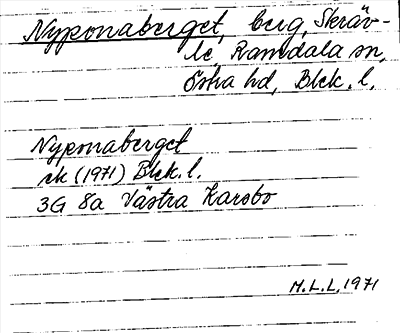 Nyponaberget, berg, Skräv-
le, Ramdala sn,
Östra hd, Blek. l.
Nyponaberget
ek (1971) Blek. l.
3G 8a Västra Karsbo
M.L.L, 1971